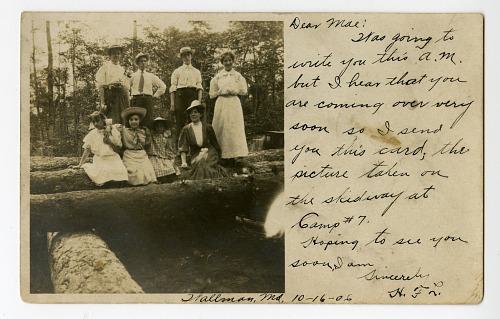 Dear Mae:
Was going to
write you this A.M.
but I hear that you
are coming over very
soon so I send
you this card, the
picture taken on
the skidway at
Camp #7.
Hoping to see you
soon, I am
Sincerely
H. F. L.
Wallman, Md, 10-16-06